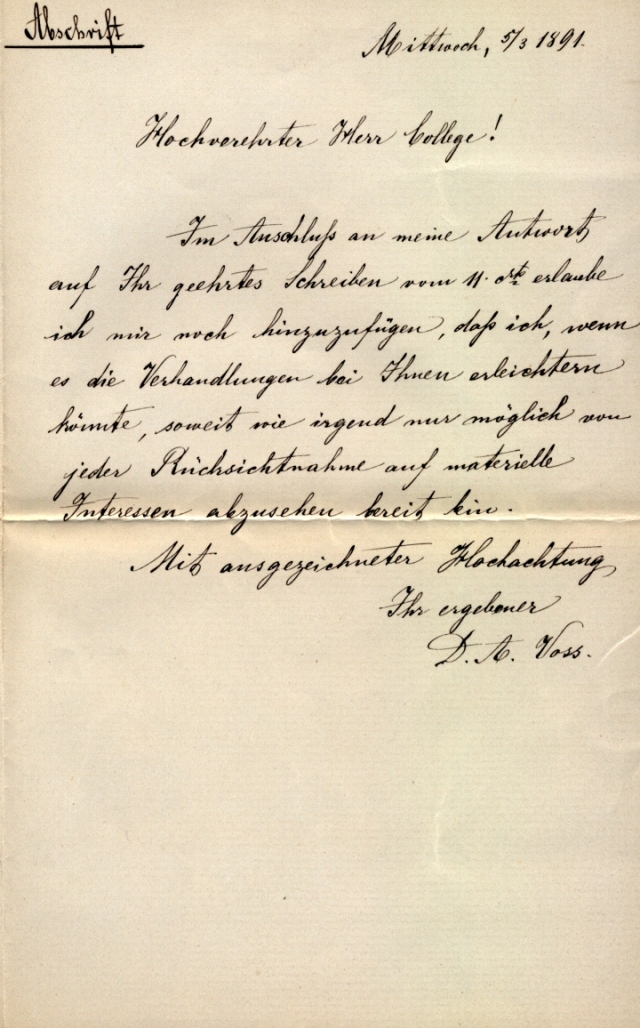 Abschrift
Mittwoch, 5/3 1891.
Hochverehrter Herr College!
Im Anschluß an meine Antwort
auf Ihr geehrtes Schreiben vom 11. erlaube
ich mir noch hinzuzufügen, daß ich, wenn
es die Verhandlungen bei Ihnen erleichtern
könnte, soweit wie irgend nur möglich von
jeder Rücksichtnahme auf materielle
Interessen abzusehen bereit bin.
Mit ausgezeichneter Hochachtung
Ihr ergebener
D. A. Voss.